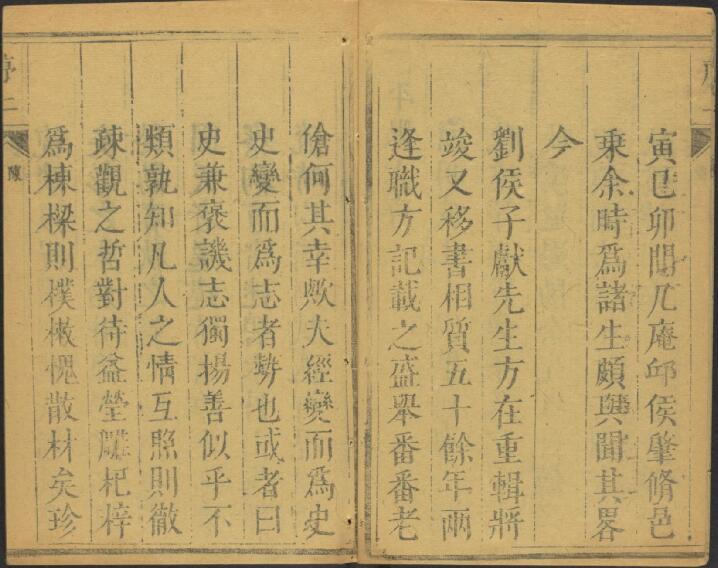 寅巳卯間几庵邱侯肇脩邑
乗余時爲諸生頗與聞其畧
今
劉侯子獻先生方在重輯將
竣又移書相質五十餘年兩
逢職方記載之盛舉番番老
傖何其幸歟夫經變而爲史
史變而爲志者勢也或者曰
史兼褒譏志獨揚善似乎不
類孰知凡人之情互照則徹
疎觀之哲對待益瑩雖杞梓
爲棟樑則樸樕愧散材矣珍
序二
陳